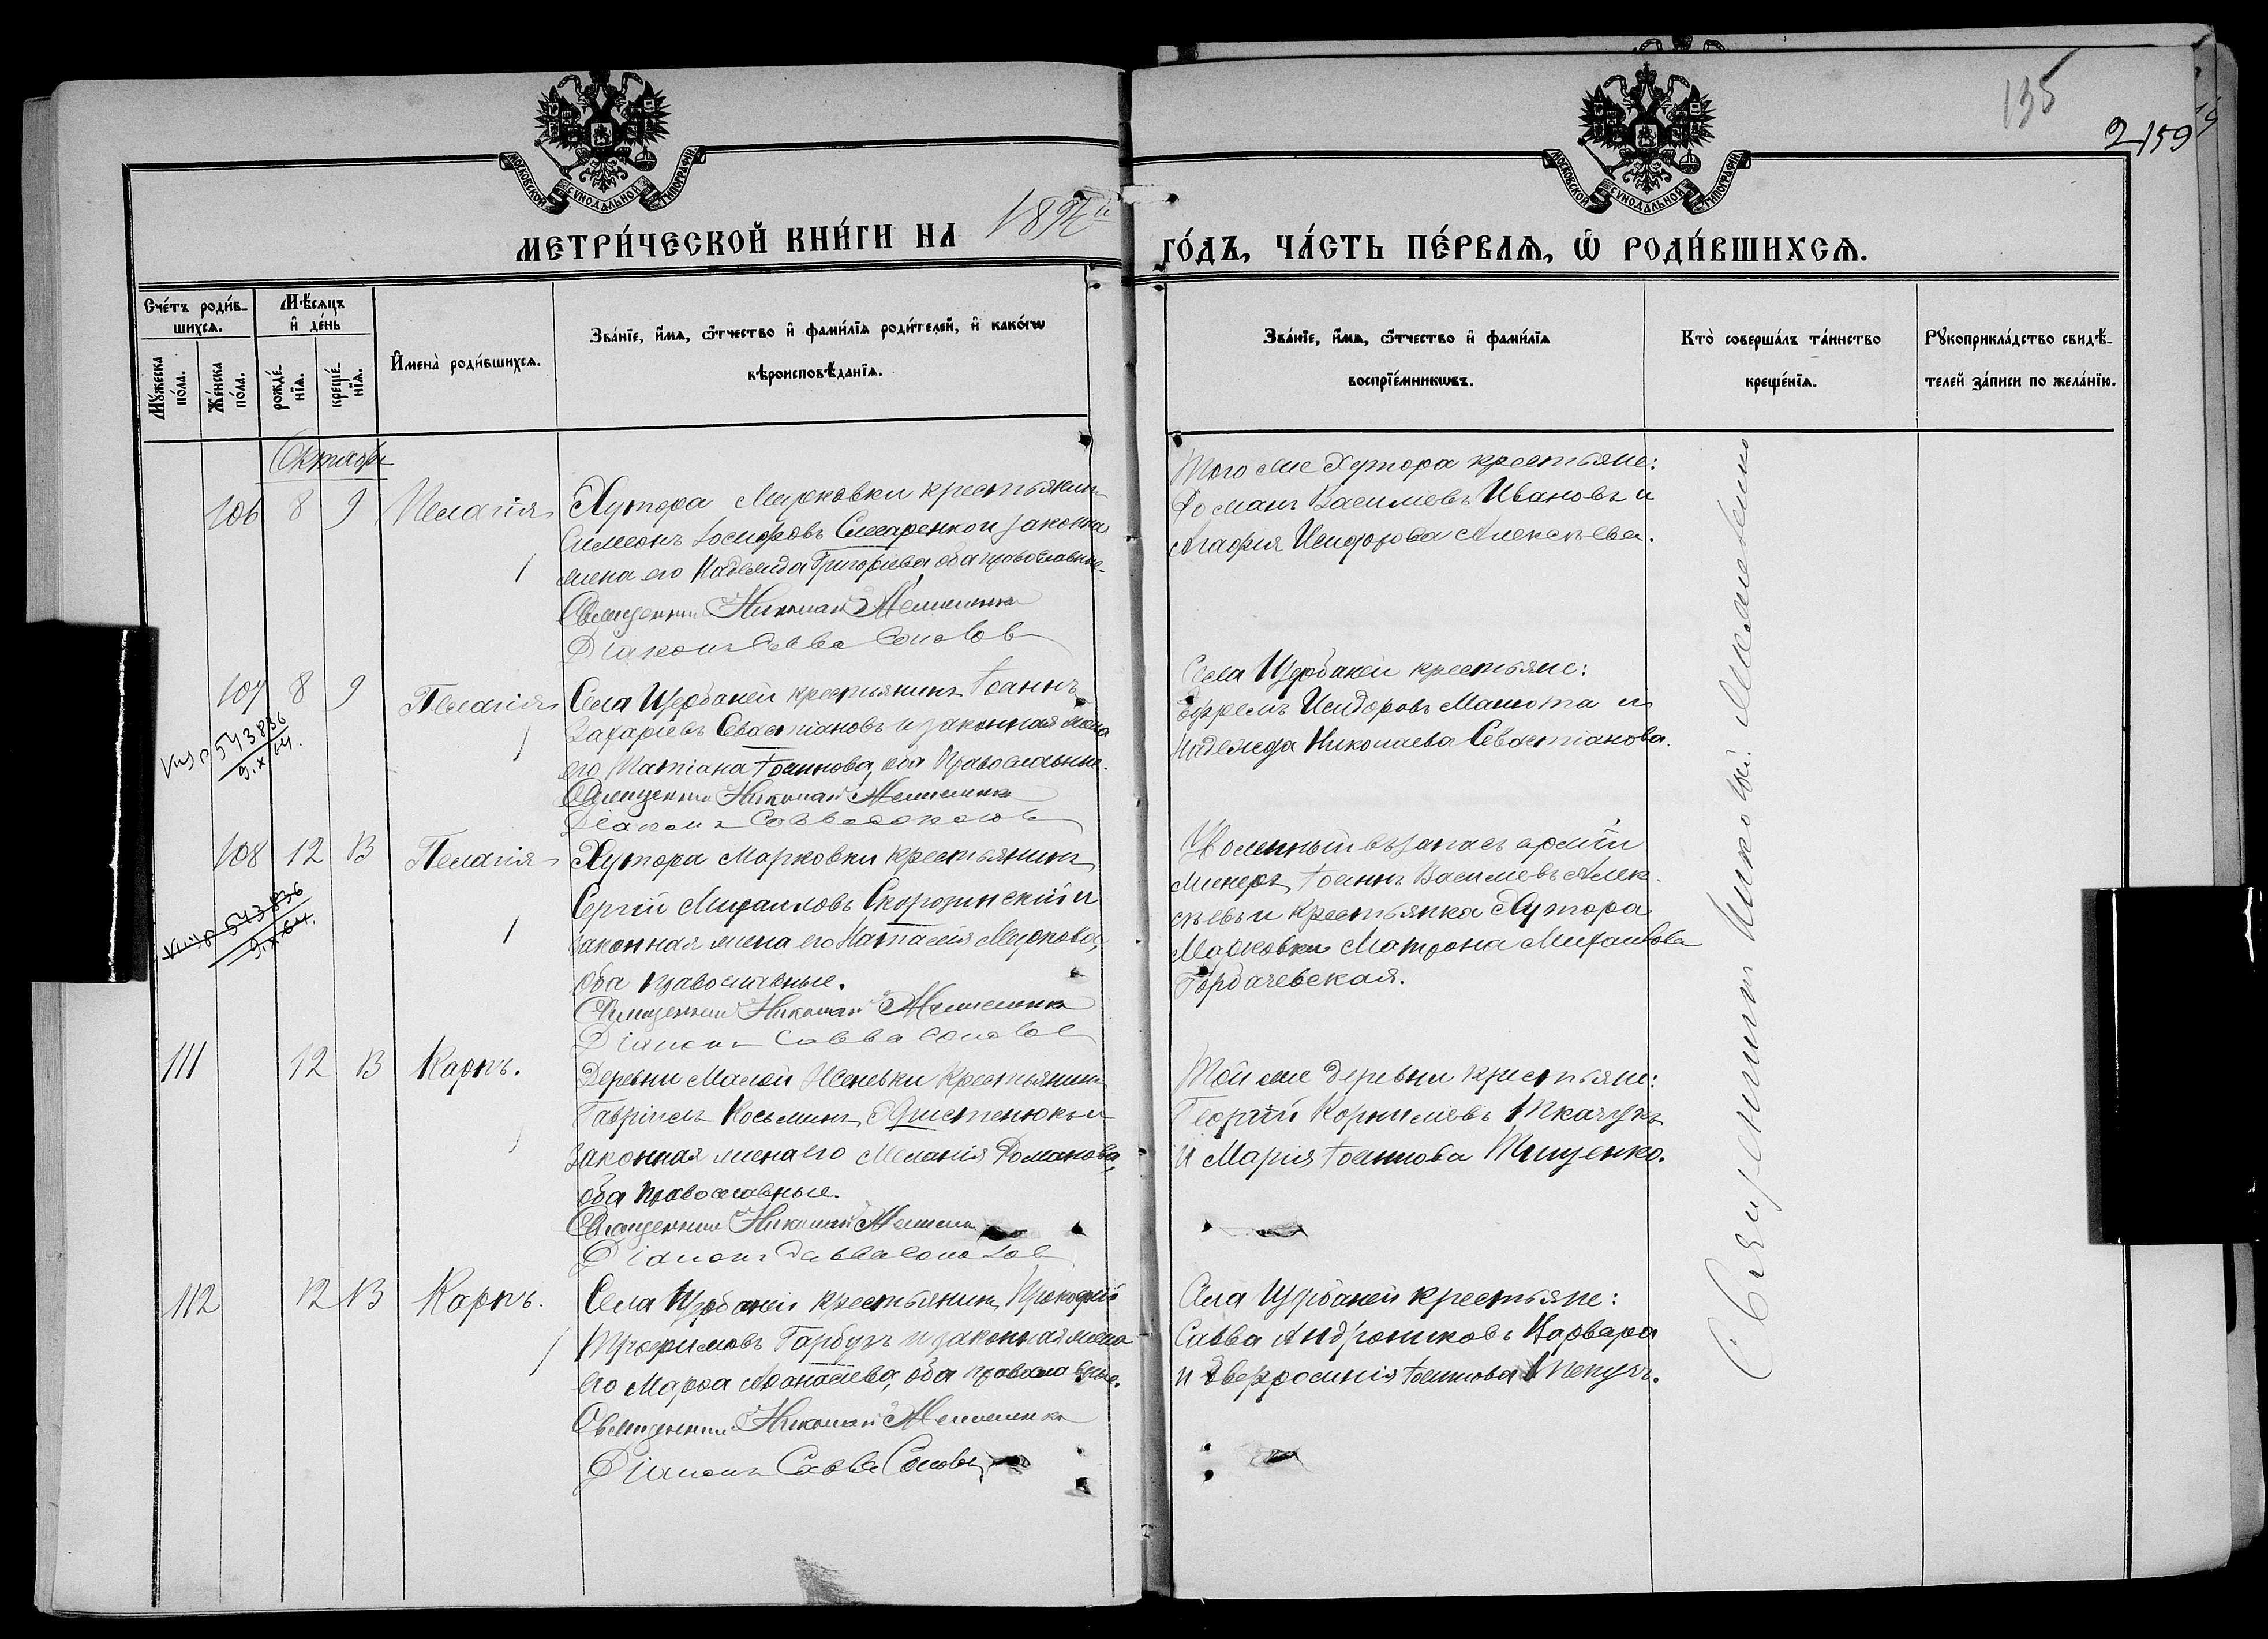 135
2159
МОСКОВСКОЙ СѴНОДАЛЬНОЙ ТИПОГРАФІИ
МОСКОВСКОЙ СѴНОДАЛЬНОЙ ТИПОГРАФІИ
МЕТРИ́ЧЕСКОЙ КНИ́ГИ НА
ГО́ДЪ, ЧА́СТЬ ПЕ́РВАѦ, Ѽ РОДИ́ВШИХСѦ.
Сче́тъ роди́в-
шихсѧ.
Мꙋ́жеска по́ла.
Же́нска по́ла.
Мѣ́сѧцъ и҆ де́нь
рожде́-нїѧ.
креще́-нїѧ.
И҆мена̀ роди́вшихсѧ.
Зва́нїе, и҆́мѧ, ѻ҆́тчество и҆ фами́лїѧ роди́телей, и҆ како́гѡ
вѣроисповѣ́данїѧ.
Зва́нїе, и҆́мѧ, ѻ҆́тчество и҆ фами́лїѧ
воспрїе́мникѡвъ.
Кто̀ соверша́лъ та́инство
креще́нїѧ.
Рꙋкоприкла́дство свидѣ́-
телей за́писи по жела́нїю.
Октябрь
106 8 9 Пелагія
Хутора Марковки крестьянинъ
Симеонъ Слесаренко и законная
жена его Надежда Григоріева оба православные.
Священник Николай
Діаконъ Савва Соколов
Того же Хутора крестьяне:
Романъ Васильевъ Ивановъ и
Агафія Исидорова Алексѣева.
107 8 9 Пелагія
543836
9.X.64.
Села Щербаней крестьянинъ Іоаннъ
Захаріевъ Севастіановъ и законная жена
его Татіана Іоаннова, оба Православные.
Священник Николай
Діаконъ Савва Соколов
Села Щербаней крестьяне:
Ефремъ Исидоровъ Манюта и
Надежда Николаева Севастіанова.
108 12 13 Пелагія
543836
9.X.64.
Хутора Марковки крестьянинъ
Сергій Михаиловъ Скорозинскій и
законная жена его Наталія Маркова,
оба православные.
Священник Николай
Діаконъ Савва Соколов
Уволенный въ запасъ арміи
Іоаннъ Васильевъ Алек-
сѣевъ и крестьянка Хутора
Марковки Матрона Михаилова
Горбачевская.
111 12 13 Карпъ.
Деревни Малой крестьянинъ
Гавріилъ Косьминъ и
законная жена его Меланія Романова,
оба православные.
Священник Николай
Діаконъ Савва Соколов
Той же деревни крестьяне:
Георгій Корниліевъ Ткачукъ
и Марія Іоаннова Тищенко.
112 12 13 Карпъ.
Села Щербаней крестьянинъ Прокофій
Трофимовъ Гарбузъ и законная жена
его Марфа Афанасіева, оба православные.
Священник Николай
Діаконъ Савва Соколов
Села Щербаней крестьяне:
Савва Андрониковъ Варвара
и Евфросинія Іоаннова
Священникъ Николай